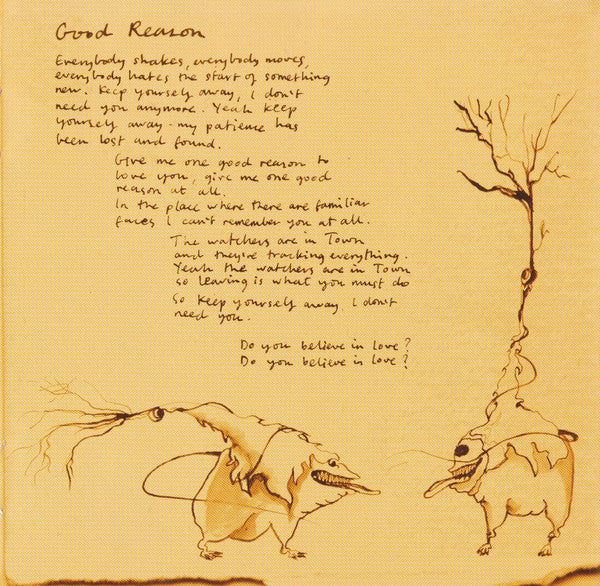 Good Reason
Everybody shakes, everybody moves,
everybody hates the start of something
new. Keep yourself away, I don't
need you anymore. Yeah keep
yourself away - my patience has
been lost and found.
Give me one good reason to
love you, give me one good
reason at all.
In the place where there are familiar
faces I can't remember you at all.
The watchers are in Town
and they're tracking everything.
Yeah the watchers are in Town
so leaving is what you must do
So keep yourself away, I don't
need you.
Do you believe in love?
Do you believe in love?